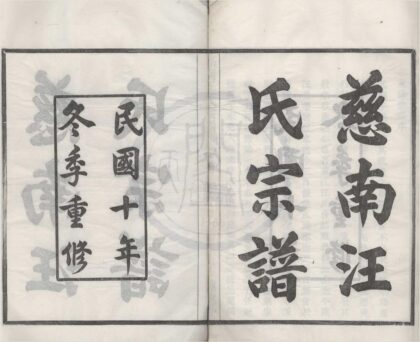 慈南汪
氏宗譜
民國十年
冬季重修